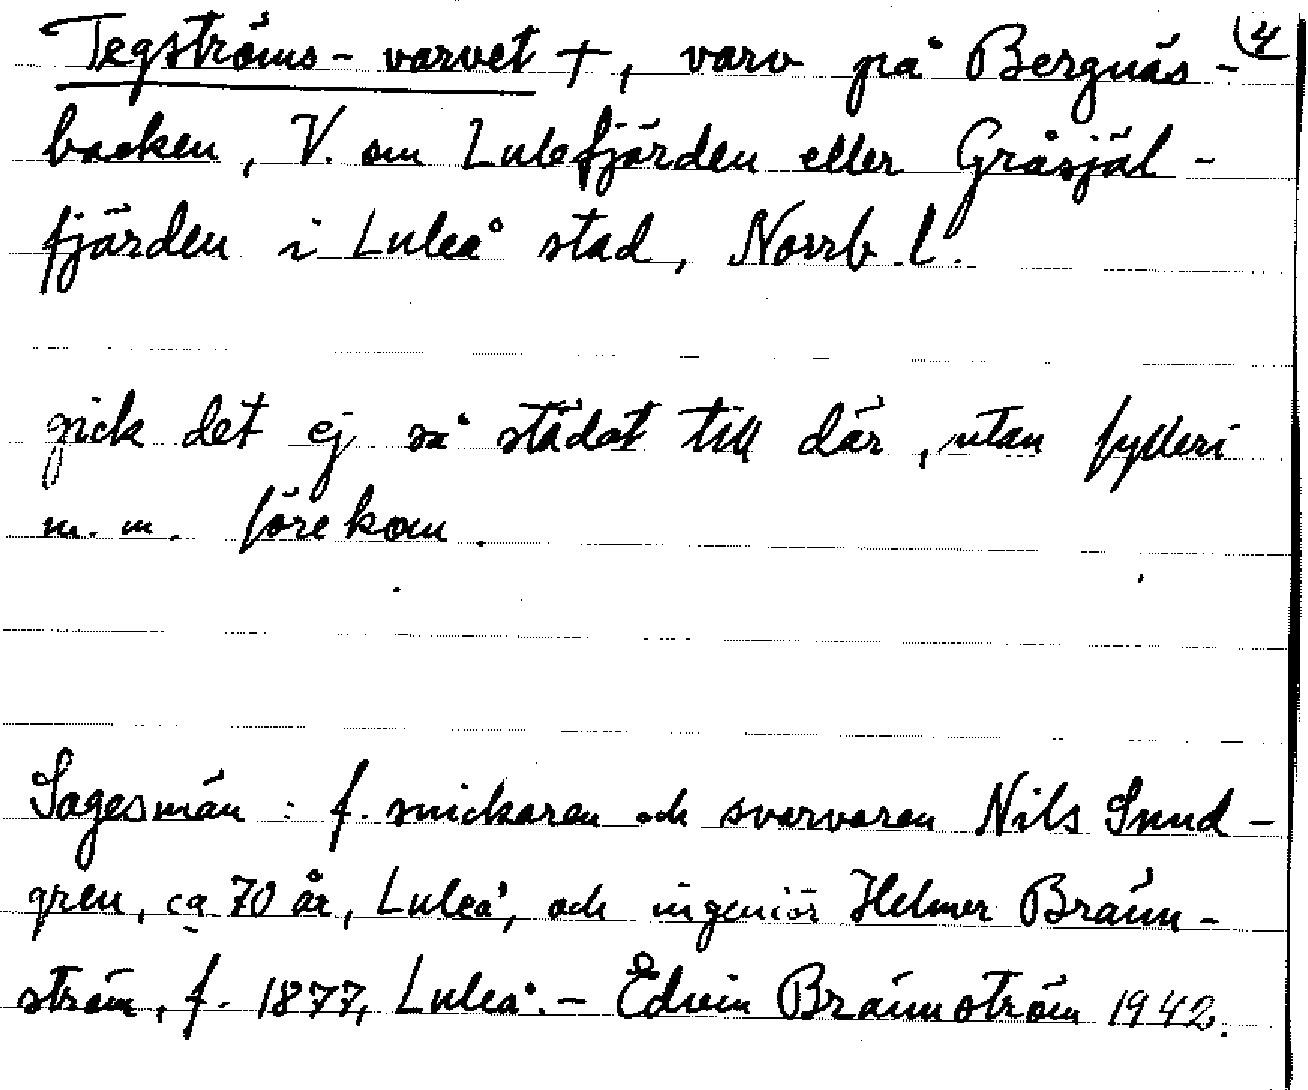 Tegströms-varvet †, varv på Bergnäs- (4
backen, V. om Lulefjärden eller Gråsjäl-
fjärden i Luleå stad, Norrb. l.
gick det ej så städat till där, utan fylleri
m. m. förekom.
Sagesmän: f. snickaren och svarvaren Nils Sund-
gren, ca 70 år, Luleå, och ingeniör Helmer Bränn-
ström, f. 1877, Luleå. – Edvin Brännström 1942.